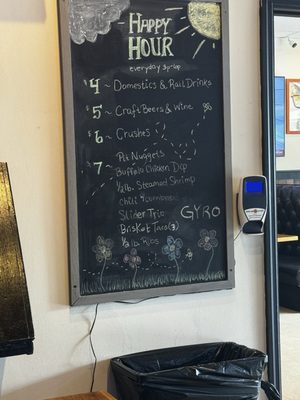 HAPPY
HOUR
everyday 3p-6p
4 ~ Domestics & Rail Drinks
5 ~ Craft Beers & Wine
6 ~ Crushes
7 ~ Pit Nuggets
Buffalo Chicken Dip
1/2lb. Steamed Shrimp
Chili & Cornbread
Slider Trio
GYRO
Brisket Taco (3)
Ribs